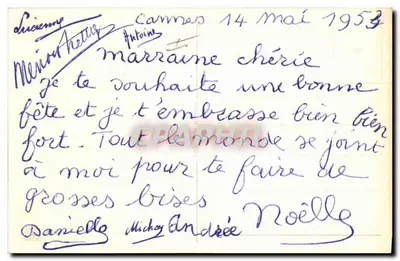 Lucienne
Cannes 14 mai 1953
Antoine
marraine chérie
je te souhaite une bonne
fête et je t'embrasse bien bien
fort. Tout le monde se joint
à moi pour te faire de
grosses bises
Danielle Michou Andrée Noëlle